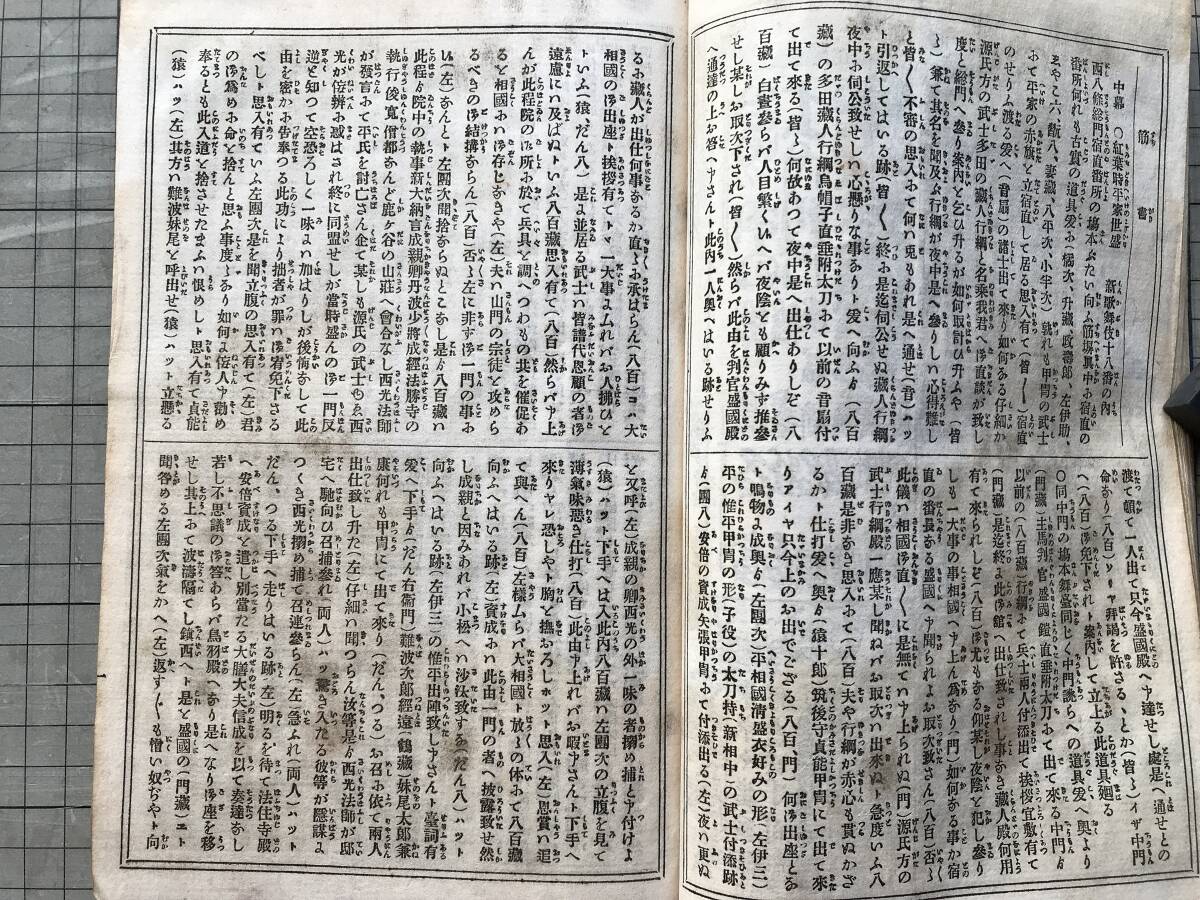 筋書
中幕 ○紅葉時平家世盛 新歌舞伎十八番の内
西八條総門宿直番所の塲本ぶたい向ふ筋塀真中お宿直の
番所何れも古賞の道具爰お橘次、升藏、政壽郎、左伊助、
八、妻藏、八平次、小半次)孰れも甲冑の武士
おて平家の赤旗と立宿直して居る思入有て(皆〱)宿直
のせりふ渡る爰へ(音扇)の諸士出て來り如何ある仔細か
源氏方の武士多田の藏人行綱と名乗我君へ御直談が致し
度と総門へ參り案内と乞ひ升るが如何取計ひ升ふや(皆
〱)兼て其名を聞及ぶ行綱が夜中是へ參りしハ心得難し
と皆〱不審の思入おて何ハ兎もあれ是へ通せ(音)ハッ
ト引返してはいる跡(皆〱)終お是迄伺公せぬ藏人行綱
夜中お伺公致せしハ心懸りな事ありト爰へ向ふゟ(八百
藏)の多田藏人行綱烏帽子直垂附太刀おて以前の音扇付
て出て來る(皆〱)何故あつて夜中是へ出仕ありしぞ(八
百藏)白晝參らバ人目繁くハヘバ夜陰とも顧りみず推參
せし某しお取次下され(皆〱)然らバ此由を判官盛國殿
へ通達の上お答へ申さんト此内一人奥へはいる跡せりふ
渡て頓て一人出て只今盛國殿へ申達せし處是へ通せとの
命あり(八百)ソリャ拝謁を許さるゝとか(皆〱)イザ中門
へ(八百)御免下されト案内して立上る此道具廻る
○同中門の塲本舞臺同じく中門誂らへの道具爰へ奥より
(門藏)主馬判官盛國鎧直垂附太刀おて出て來る中門ゟ
以前の(八百藏)行綱おて兵士兩人付添出て挨拶宜敷有て
(門藏)是迄終お此御館へ出仕致されし事なき藏人殿何用
有て來られしぞ(八百)御尤もある仰某し夜陰と犯し參り
しも一大事の事相國へ申さん為あり(門)如何ある事か宿
直の番長ある盛國へ申聞られよお取次致さん(八百)否〱
此儀ハ相國御直〱に是無てハ申上られぬ(門)源氏方の
武士行綱殿の應某し聞ねバお取次ハ出來ぬト急度いふ八
百藏是非なき思入おて(八百)夫や行綱が赤心も貫ぬかざ
るかト仕打爰へ奥ゟ(猿十郎)筑後守貞能甲冑にて出て來
りアイヤ只今上のお出でござる(八百、門)何御出座とな
ト鳴物よ成奥ゟ(左團次)平相國清盛衣好みの形(左伊三)
平の惟平甲冑の形(子役)の太刀持(新相中)の武士付添跡
ゟ(團八)安倍の資成矢張甲冑おて付添出る(左)夜ハ更ぬ
るお藏人が出仕何事なるか直〱お承はらん(八百)コハ大
相國の御出座ト挨拶有てトヾ一大事ムれバお人拂ひと
トいふ(猿、だん八)是よ並居る武士ハ皆譜代恩顧の者御
遠慮にハ及ばぬトいふ八百藏思入有て(八百)然らバ申上
んが此程院の御所お於て兵具と調へつわもの共を催促お
ると相國おハ御存じなきや(左)夫ハ山門の宗徒と攻めら
るべきの御結搆ならん(八百)否〱左に非す御一門の事お
ハ(左)なんとト左團次聞捨ならぬとこなし是ゟ八百藏ハ
此程ゟ院中の執事新大納言成親卿丹波少將成経法勝寺の
執行俊寛僧都なんど鹿ヶ谷の山莊へ會合なし西光法師
が發言おて平氏を討亡さん企て某しも源氏の武士ゆゑ西
光が侫辨お惑はされ終に同盟せしが當時盛んの御一門反
逆と知つて空恐ろしく一味よハ加はりしが後悔なして此
由を密かお告奉つる此功により拙者が罪ハ御宥免下さる
べしト思入有ていふ左團次是を聞立腹の思入有て(左)君
の御為めお命と捨んと思ふ事度〱あり如何よ侫人申勸め
奉るとも此入道と捨させたまふハ恨めしト思入有て貞能
(猿)ハッ(左)其方ハ難波妹尾と呼出せ(猿)ハット立懸る
と又呼(左)成親の卿西光の外一味の者搦め捕と申付けよ
(猿)ハット下手へは入此内八百藏ハ左團次の立腹を見て
薄氣味惡き仕打(八百)此由申上れバお暇申さんト下手へ
來りヤレ恐しやト胸と撫おろしホット思入(左)恩賞ハ追
て與へん(八百)左樣ムらバ大相國ト放〱の体おて八百藏
向ふへはいる跡(左)資成おハ此由一門の者へ披露致せ然
し成親と因みあれバ小松へハ沙汰致する(だん八)ハット
向ふへはいる跡(左伊三)の惟平出陣致し申さんト臺詞有
爰へ下手ゟ(だん右衞門)難波次郎經遠(鶴藏)妹尾太郎兼
康何れも甲冑にて出て來り(だん、つる)お召お依て兩人
出仕致し升た(左)仔細ハ聞つらん汝等是ゟ西光法師が邸
宅へ馳向ひ召捕參れ(両人)ハッ驚き入たる彼等が隱謀よ
つくき西光搦め捕て召連參らん(左)急ふれ(両人)ハット
だん、つる下手へ走りはいる跡(左)明るを待て法住寺殿
へ安倍資成と遣し別當たる大膳大夫信成を以て奏達なし
若し不思議の御答あらバ鳥羽殿へなり是へなり御座を移
せし其上おて波濤隔てし鎮西へト是と盛國の(門藏)エト
聞咎める左團次氣をかへ(左)返す〲も憎い奴おやト向